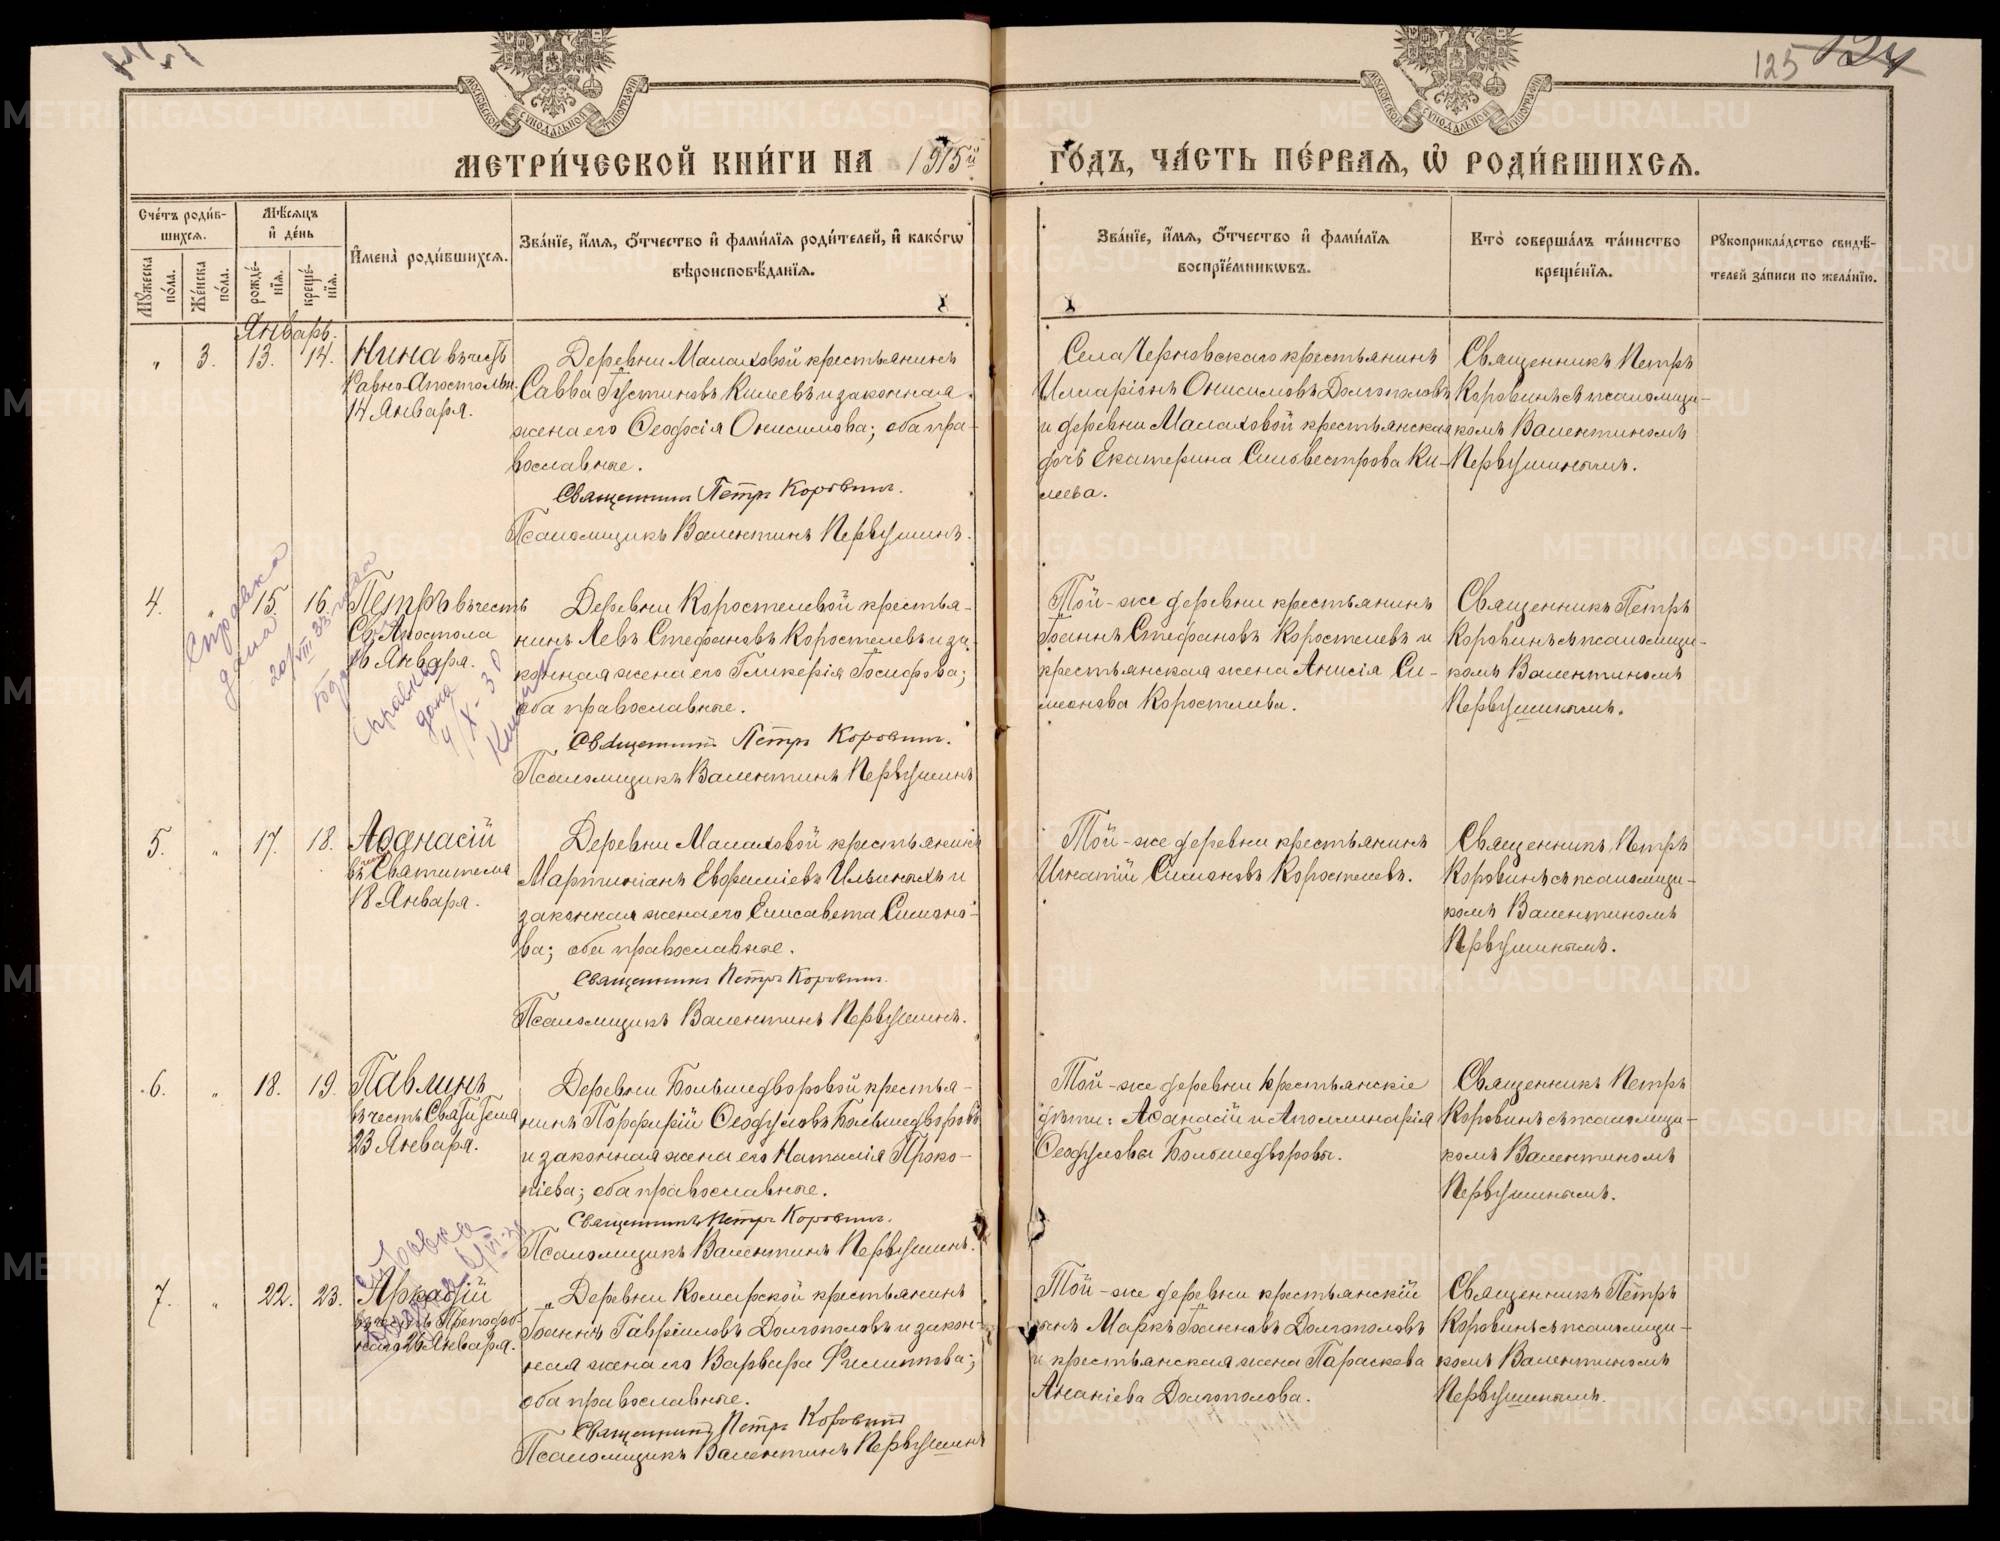 125 124
МОСКОВСКОЙ СУНОДАЛЬНОЙ ТИПОГРАФІИ
МОСКОВСКОЙ СУНОДАЛЬНОЙ ТИПОГРАФІИ
МЕТРИ́ЧЕСКОЙ КНИ́ГИ НА 1915й ГО́ДЪ, ЧА́СТЬ ПЕ́РВАѦ, Ѡ҆ РОДИ́ВШИХСѦ.
Счéтъ роди́в-
шихсѧ.
Мѣ́сѧцъ
и҆ дéнь
И҆менà роди́вшихсѧ.
Звáнїе, и҆́мѧ, ѻ҆́тчество и҆ фами́лїѧ роди́телей, и҆ какóгѡ
вѣроисповѣ́данїѧ.
Звáнїе, и҆́мѧ, ѻ҆́тчество и҆ фами́лїѧ
воспрїéмникѡвъ.
Кто̀ совершáлъ тáинство
крещéнїѧ.
Рꙋкоприклáдство свидѣ́-
телей зáписи по желáнїю.
Мꙋ́жеска
пóла.
Жéнска
пóла.
рождé-
нїѧ.
крещé-
нїѧ.
Январь.
" 3. 13. 14. Нина въ честь
Равно-Апостольн.
14 Января.
Деревни Малаховой крестьянинъ
Савва Іустиновъ Килевъ и законная
жена его Ѳеодосія Онисимова; оба пра-
вославные.
Священникъ Петръ Коровинъ.
Псаломщикъ Валентинъ Первушинъ.
Села Черновскаго крестьянинъ
Илларіонъ Онисимовъ Долгополовъ
и деревни Малаховой крестьянская
дочь Екатерина Сильвестрова Ки-
лева.
Священникъ Петръ
Коровинъ съ псаломщи-
комъ Валентиномъ
Первушинымъ.
4. " 15. 16. Петръ въ честь
Св. Апостола
16 Января.
Справка
дана
20/VIII 33 года
Справка
дана
4/X-30
Деревни Коростелевой крестья-
нинъ Левъ Стефановъ Коростелевъ и за-
конная жена его Гликерія Іосифова;
оба православные.
Священникъ Петръ Коровинъ.
Псаломщикъ Валентинъ Первушинъ
Той-же деревни крестьянинъ
Іоаннъ Стефановъ Коростелевъ и
крестьянская жена Анисія Си-
меонова Коростелева.
Священникъ Петръ
Коровинъ съ псаломщи-
комъ Валентиномъ
Первушинымъ.
5. " 17. 18. Аѳанасій
въ честь Святителя
18 Января.
Деревни Малаховой крестьянинъ
Мартиніанъ Евфиміевъ Ильиныхъ и
законная жена его Елисавета Симоно-
ва; оба православные.
Священникъ Петръ Коровинъ.
Псаломщикъ Валентинъ Первушинъ.
Той-же деревни крестьянинъ
Игнатій Симоновъ Коростелевъ.
Священникъ Петръ
Коровинъ съ псаломщи-
комъ Валентиномъ
Первушинымъ.
6. " 18. 19. Павлинъ
въ честь Святителя
23 Января.
Деревни Большедворовой крестья-
нинъ Порфирій Ѳеодуловъ Большедворовъ
и законная жена его Наталія Проко-
піева; оба православные.
Священникъ Петръ Коровинъ.
Псаломщикъ Валентинъ Первушинъ.
Той-же деревни крестьянскіе
дѣти: Аѳанасій и Аполлинарія
Ѳеодуловы Большедворовы.
Священникъ Петръ
Коровинъ съ псаломщи-
комъ Валентиномъ
Первушинымъ.
7. " 22. 23. Аркадій
въ честь Преподоб-
наго 26 Января.
Справка
Деревни Комарской крестьянинъ
Іоаннъ Гавріиловъ Долгополовъ и закон-
ная жена его Варвара Филиппова;
оба православные.
Священникъ Петръ Коровинъ
Псаломщикъ Валентинъ Первушинъ
Той-же деревни крестьянскій
сынъ Маркъ Іоанновъ Долгополовъ
и крестьянская жена Параскева
Ананіева Долгополова.
Священникъ Петръ
Коровинъ съ псаломщи-
комъ Валентиномъ
Первушинымъ.
METRIKI.GASO-URAL.RU